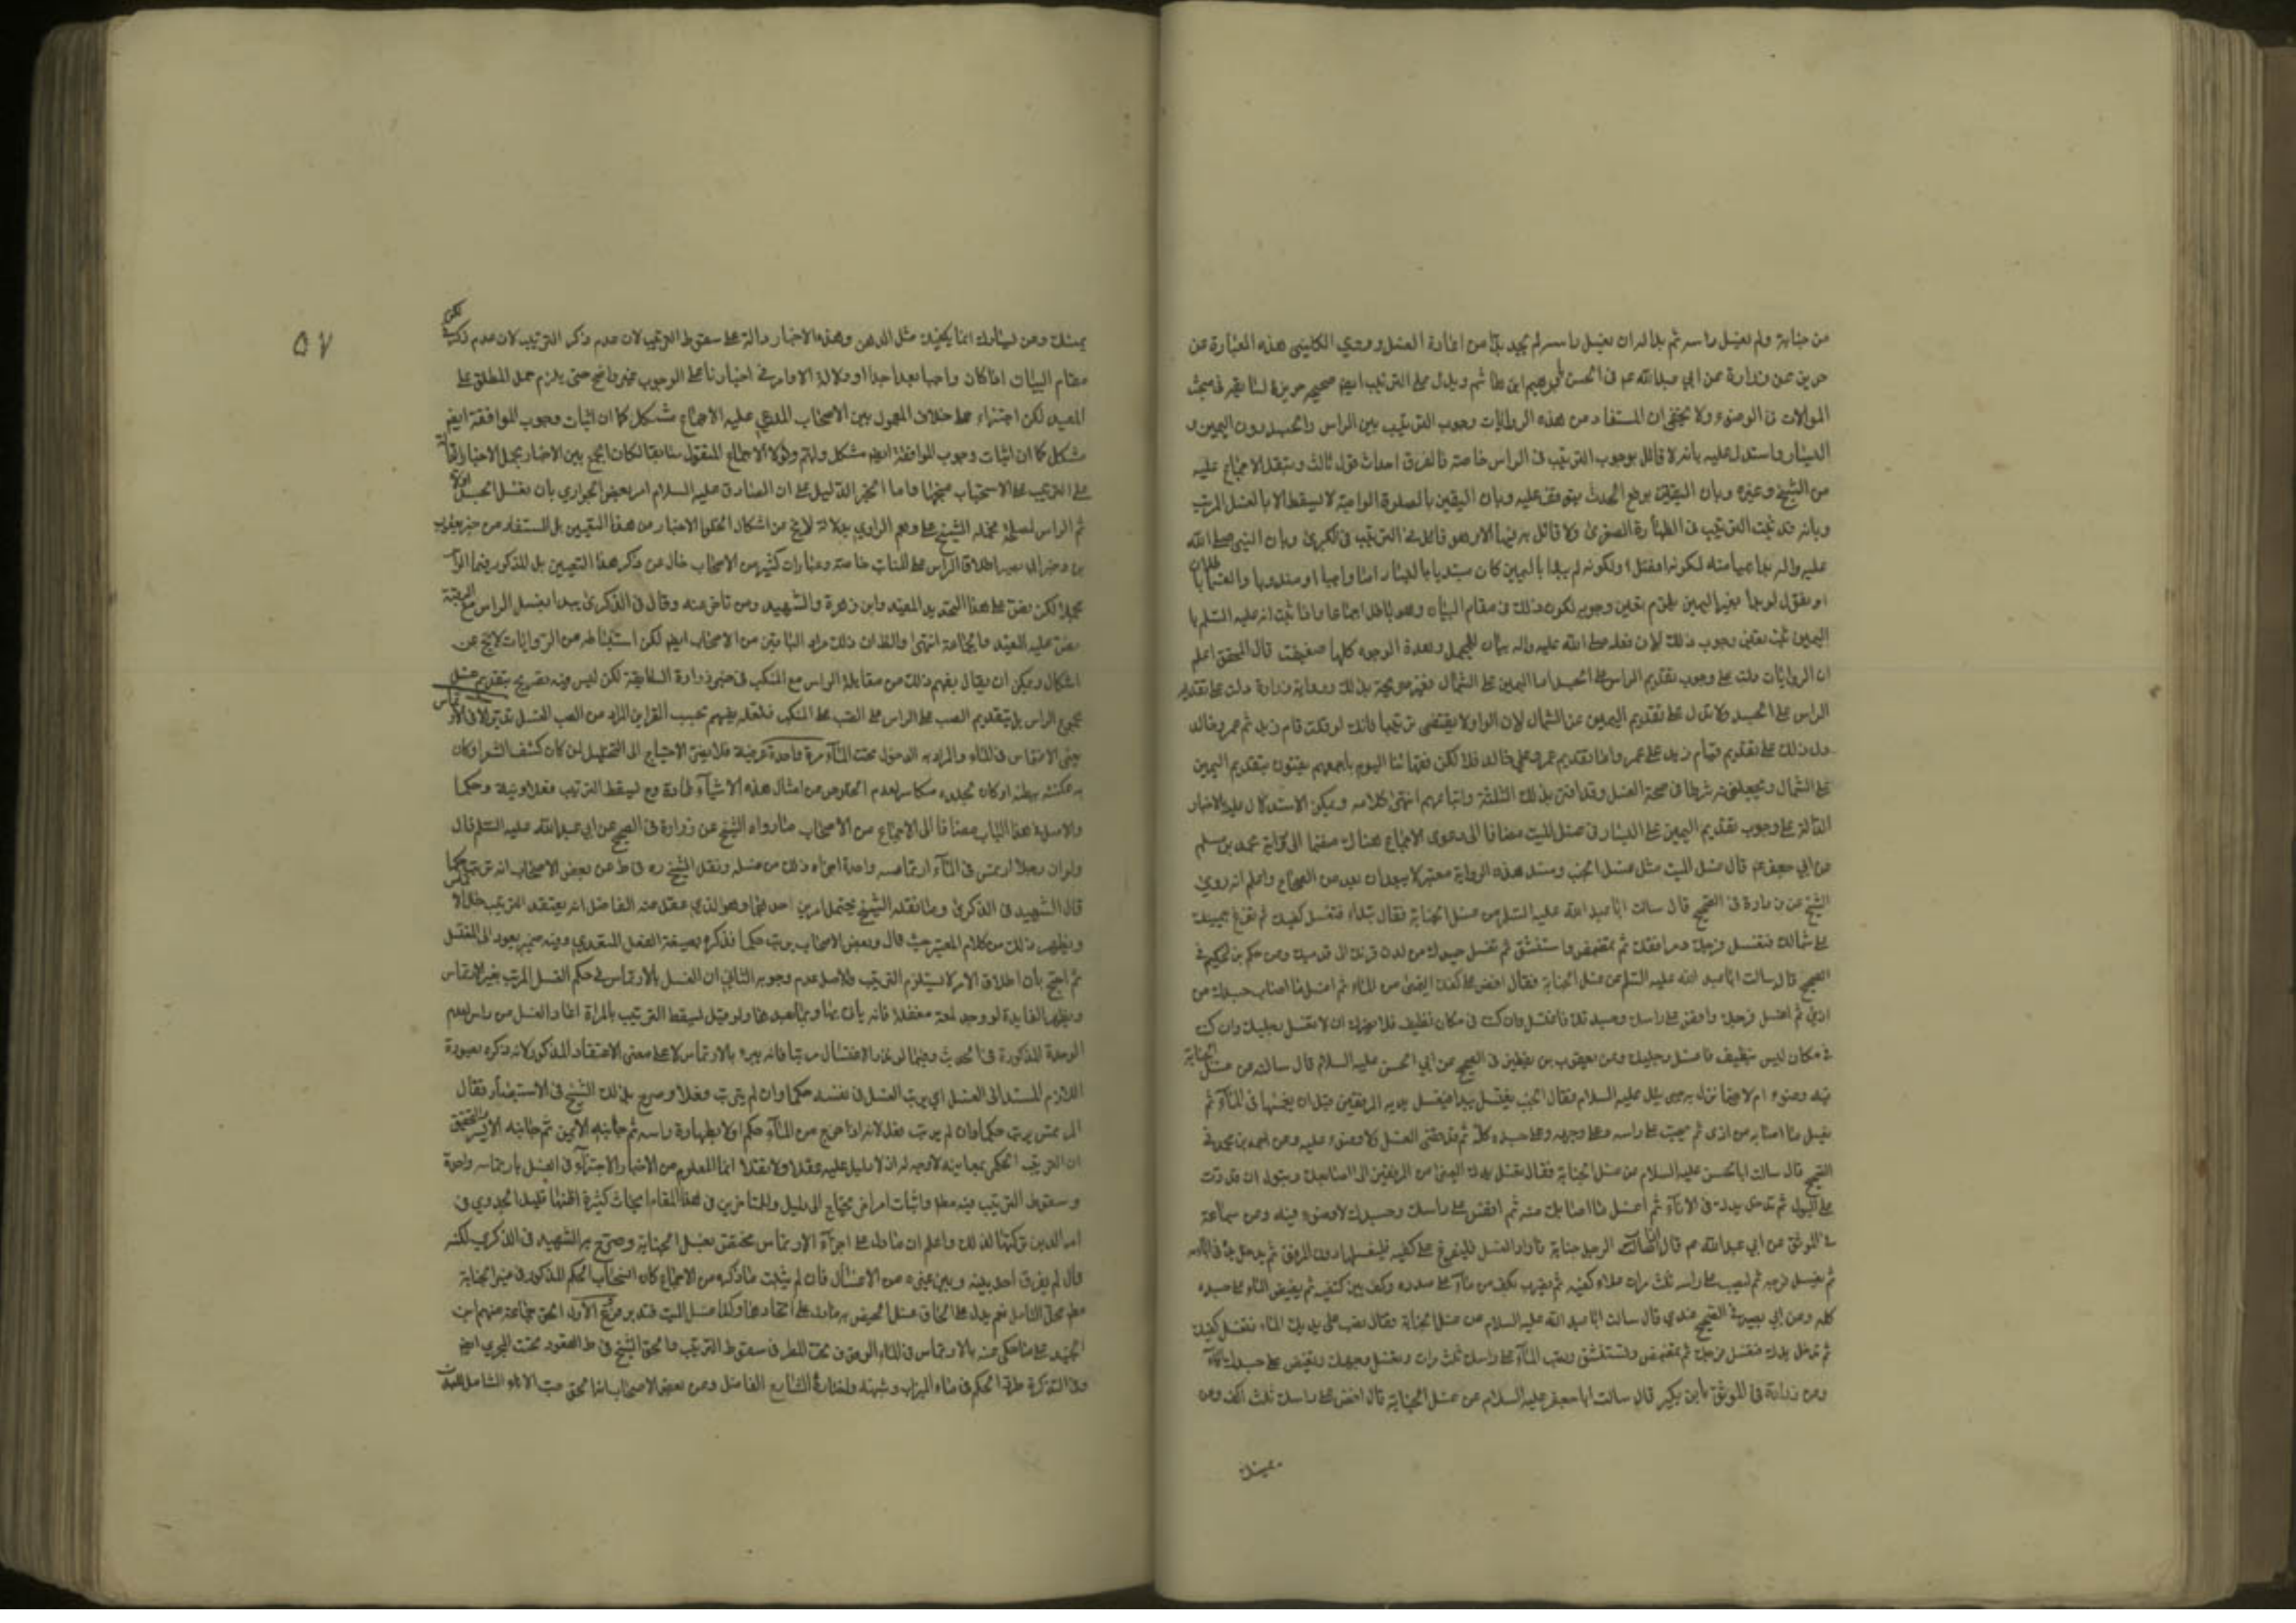 من جنابة ولم يغسل راسه ثم بدا له ان يغسل راسه لم يجد بدا من اعادة الغسل وروي الكليني هذه العبارة عن
حريز عن زرارة عن ابي عبدالله عم في الحسن بابرهيم ابن هاشم ويدل على الترتيب ايضا صحيحة حريز السابقة في مبحث
الموالات في الوضوء ولا يخفى ان المستفاد من هذه الروايات وجوب الترتيب بين الراس والجسد دون اليمين و
اليسار واستدل عليه بانه لا قائل بوجوب الترتيب في الراس خاصة فالفرق احداث قول ثالث وبنقل الاجماع عليه
من الشيخ وغيره وبان اليقين برفع الحدث يتوقف عليه وبان اليقين بالصلوة الواجبة لا يسقط الا بالغسل المرتب
وبانه قد ثبت الترتيب في الطهارة الصغرى ولا قائل به فيها الا وهو قائل في الترتيب في الكبرى وبان النبي صلى الله
عليه واله
او نقول لو بدا بغير اليمين يلزم تعين وجوبه لكون ذلك في مقام البيان وهو باطل اجماعا واذا ثبت انه عليه السلم بدا
اليمين ثبت تعين وجوب ذلك لان فعله صلى الله عليه واله بيان للمجمل وهذه الوجوه كلها ضعيفة قال المحقق اعلم
ان الروايات دلت على وجوب تقديم الراس على الجسد اما اليمين على الشمال فغير صريحة بذلك ورواية زرارة دلت على تقديم
الراس على الجسد ولا تدل على تقديم اليمين على الشمال لان الواو لا يقتضي ترتيبا فانك لو قلت قام زيد ثم عمرو وخالد
دل ذلك على تقديم قيام زيد على عمرو واما تقديم عمرو على خالد فلا لكن فقهائنا اليوم باجمعهم يفتون بتقديم اليمين
على الشمال ويجعلونه شرطا في صحة الغسل وقد افتى بذلك الثلثة واتباعهم انتهى كلامه ويمكن الاستدلال عليه بالاخبار
الدالة على وجوب تقديم اليمين على اليسار في غسل الميت مضافا الى دعوى الاجماع هناك منضما الى رواية محمد بن مسلم
عن ابي جعفر عم قال غسل الميت مثل غسل الجنب وسند هذه الرواية معتبر لا يبعد ان يعد من الصحاح واعلم انه روي
الشيخ عن زرارة في الصحيح قال سالت ابا عبد الله عليه السلم عن غسل الجنابة فقال تبدأ فتغسل كفيك ثم تفرغ بيمينك
على شمالك فتغسل فرجك ومرافقك ثم تمضمض واستنشق ثم تغسل جسدك من لدن قرنك الى قدميك وعن حكم بن حكيم في
الصحيح قال سالت ابا عبد الله عليه السلم عن غسل الجنابة فقال افض على كفك اليمنى من الماء ثم اغسل ما اصاب جسدك من
اذى ثم اغسل فرجك وافض على راسك وجسدك فاغتسل وان كنت في مكان نظيف فلا يضرك ان لا تغسل رجليك وان كنت
في مكان ليس بنظيف فاغسل رجليك وعن يعقوب بن يقطين في الصحيح عن ابي الحسن عليه السلام قال سالته عن غسل الجنابة
فيه وضوء ام لا فيما نزل به جبرئيل عليه السلام فقال الجنب يغتسل يبدا فيغسل يديه الى المرفقين قبل ان يغمسهما في الماء ثم
يغسل ما اصابه من اذى ثم يصب على راسه وعلى وجهه وعلى جسده كله ثم قد قضى الغسل ولا وضوء عليه وعن احمد بن محمد في
الصحيح قال سالت ابا الحسن عليه السلام عن غسل الجنابة فقال تغسل يدك اليمنى من المرفقين الى اصابعك وتبول ان قدرت
على البول ثم تدخل يدك في الاناء ثم اغسل ما اصابك منه ثم افض على راسك وجسدك لا وضوء فيه وعن سماعة
في الموثق عن ابي عبدالله عم قال اذا اصاب الرجل جنابة فاراد الغسل فليفرغ على كفيه فليغسلهما دون المرفق ثم يدخل يده في انائه
ثم يغسل فرجه ثم ليصب على راسه ثلث مرات ملاء كفيه ثم يضرب بكف من ماء على صدره وكف بين كتفيه ثم يفيض الماء على جسده
كله وعن ابي بصير في الصحيح عندي قال سالت ابا عبد الله عليه السلام عن غسل الجنابة فقال تصب على يديك الماء فتغسل كفيك
ثم تدخل يدك فتغسل فرجك ثم تمضمض وتستنشق وتصب الماء على راسك ثلث مرات وتغسل وجهك وتفيض على جسدك الماء
وعن زرارة في الموثق بابن بكير قال سالت ابا جعفر عليه السلام عن غسل الجنابة قال افض على راسك ثلث اكف وعن
٥٧
يمينك وعن يسارك انما يكفيك مثل الدهن وهذه الاخبار دالة على سقوط الترتيب لان عدم ذكر الترتيب
مقام البيان اذا كان واجبا بعيد جدا ودلالة الاوامر في اخبارنا على الوجوب غير واضح حتى يلزم حمل المطلق على
المقيد لكن اجتراء على خلاف المعمول بين الاصحاب المدعى عليه الاجماع مشكل كما ان اثبات وجوب الموافقة ايضا
مشكل كما ان اثبات وجوب الموافقة ايضا مشكل ولولا الاجماع المنقول سابقا لكان الجمع بين الاخبار بحمل الاخبار الدالة
على الترتيب على الاستحباب متجها واما الخبر الدليل على ان الصادق عليه السلام امر بعض الجواري بان تغسل الجسد اولا
ثم الراس لمصلحة فحمله الشيخ على وهم الراوي
اطلاق الراس على المنابت خاصة وعبارات كثير من الاصحاب خال عن ذكر هذا التعيين بل المذكور فيها الراس
مجملا لكن نص على هذا التحديد المفيد وابن زهرة والشهيد ومن تاخر عنه وقال في الذكرى يبدا بغسل الراس مع الرقبة
نص عليه المفيد والجماعة انتهى والظ ان ذلك مراد الباقين من الاصحاب ايضا لكن استنباطه من الروايات لا يخ عن
اشكال ويمكن ان يقال يفهم ذلك من مقابلة الراس مع المنكب في خبر زرارة السابقة لكن ليس فيه تصريح بتقديم غسل
مجموع الراس بل بتقديم الصب على الراس على الصب على المنكب
يعني الارتماس في الماء والمراد به الدخول تحت الماء مرة واحدة عرفية
والاصل في هذا الباب مضافا الى الاجماع من الاصحاب ما رواه الشيخ عن زرارة في الصحيح عن ابي عبد الله عليه السلم قال
ولو ان رجلا ارتمس في الماء ارتماسة واحدة اجزاه ذلك من غسله ونقل الشيخ ره في ط عن بعض الاصحاب انه يترتب حكما
قال الشهيد في الذكرى وما نقله الشيخ يحتمل امرين احدهما وهو الذي عقل عنه الفاضل انه يعتقد الترتيب حال الارتماس
ويظهر ذلك من كلام المعتبر حيث قال وبعض الاصحاب يرتب حكما فذكره بصيغة الفعل المتعدي وفيه ضمير يعود الى المغتسل
ثم احتج بان اطلاق الامر لا يستلزم الترتيب والاصل عدم وجوبه الثاني ان الغسل بالارتماس في حكم الغسل المرتب بغير الارتماس
ويظهر الفايدة لو وجد لمعة مغفلة فانه ياتي بها وبما بعدها ولو قيل بسقط الترتيب بالمرة اعاد الغسل من راس لعدم
الوحدة المذكورة في الحديث وفيما لو نذر الاغتسال مرتبا فانه يبرء بالارتماس لا على معنى الاعتقاد المذكور لانه ذكره بصورة
اللازم المسند الى الغسل اي يترتب الغسل في نفسه حكما وان لم يترتب فعلا وصرح بذلك الشيخ في الاستبصار فقال
المرتمس يرتب حكما وان لم يرتب فعلا لانه اذا خرج من الماء حكم اولا بطهارة راسه ثم جانبه الايمن ثم جانبه الايسر والتحقيق
ان الترتيب الحكمي بمعانيه لا وجه له اذ لا دليل عليه عقلا ولا نقلا انما المعلوم من الاخبار الاجتزاء في الغسل بارتماسة واحدة
وسقوط الترتيب فيه مط واثبات امر اخر يحتاج الى دليل وللمتاخرين في هذا المقام ابحاث كثيرة اظنها قليلة الجدوى في
امر الدين تركتها لذلك واعلم ان ما دل على اجزاء الارتماس مختص بغسل الجنابة وصرح به الشهيد في الذكرى لكنه
قال لم يفرق احد بينه وبين غيره من الاغسال فان لم يثبت ما ذكره من الاجماع كان انسحاب الحكم المذكور في غير الجنابة
محل التامل نعم يدل على الحاق غسل الحيض به ما دل على اتحادهما وكذا غسل الميت فتدبر فروع الاول الحق جماعة منهم ابن
الجنيد على ما حكى عنه بالارتماس في الماء الوقوف تحت المطر في سقوط الترتيب والحق الشيخ في ط القعود تحت المجرى ايضا
وفي التذكرة طرد الحكم في ماء الميزاب وشبهه واختاره الشارح الفاضل وعن بعض الاصحاب انه الحق صب الاناء الشامل للبدن